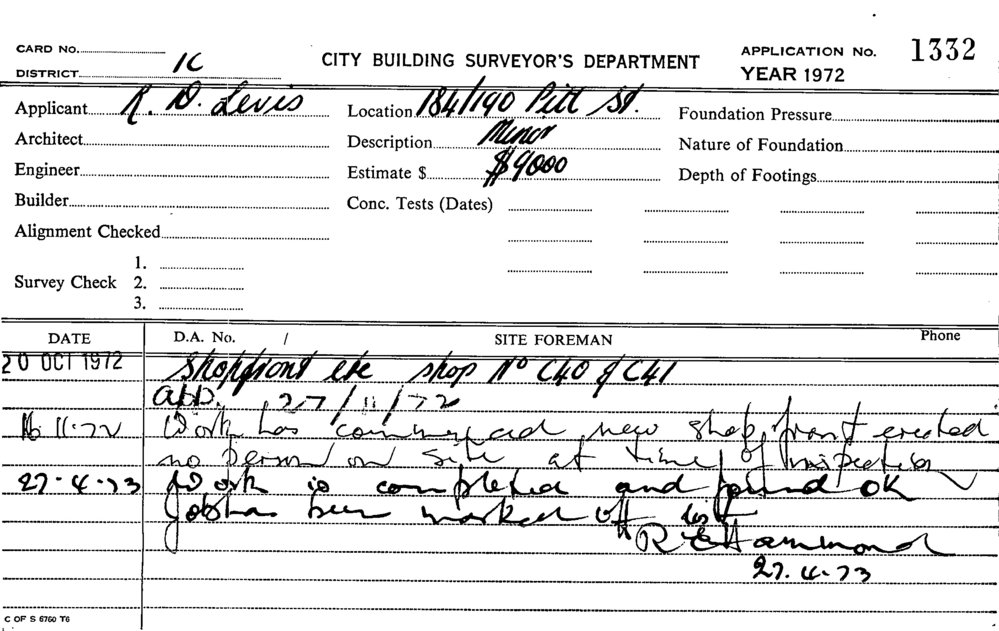 CARD No.
DISTRICT 1C
CITY BUILDING SURVEYOR'S DEPARTMENT
APPLICATION No. 1332
YEAR 1972
Applicant R. D. Levis
Location 184/190 Pitt St.
Foundation Pressure
Architect
Description Minor
Nature of Foundation
Engineer
Estimate $ $9000
Depth of Footings
Builder
Conc. Tests (Dates)
Alignment Checked
Survey Check 1.
2.
3.
DATE D.A. No. / SITE FOREMAN Phone
20 OCT 1972 Shopfront etc shop No C40 & C41
app. 27/11/72
16 11.72 Work has commenced new shop front erected
no person on site at time of inspection
27.4.73 Work is completed and found OK
Job has been marked off list
R E Hammond
27.4.73
C OF S 6760 T6